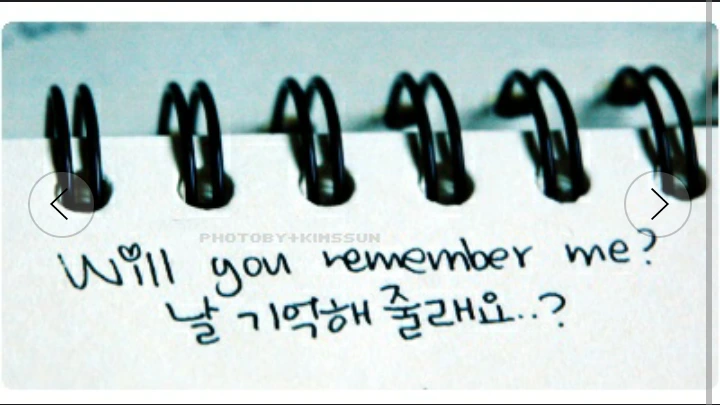 PHOTOBY+KIMSSUN
Will you remember me?
날 기억해 줄래요..?